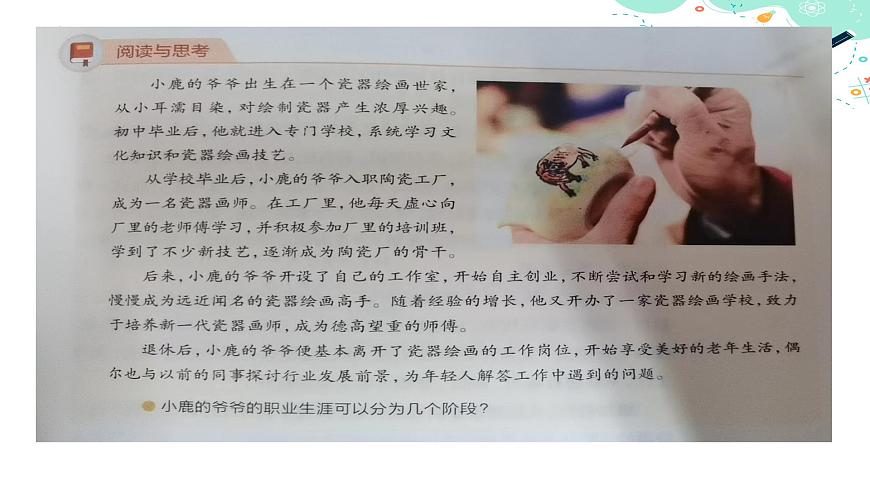 阅读与思考
小鹿的爷爷出生在一个瓷器绘画世家，
从小耳濡目染，对绘制瓷器产生浓厚兴趣。
初中毕业后，他就进入专门学校，系统学习文
化知识和瓷器绘画技艺。
从学校毕业后，小鹿的爷爷入职陶瓷工厂，
成为一名瓷器画师。在工厂里，他每天虚心向
厂里的老师傅学习，并积极参加厂里的培训班，
学到了不少新技艺，逐渐成为陶瓷厂的骨干。
后来，小鹿的爷爷开设了自己的工作室，开始自主创业，不断尝试和学习新的绘画手法，
慢慢成为远近闻名的瓷器绘画高手。随着经验的增长，他又开办了一家瓷器绘画学校，致力
于培养新一代瓷器画师，成为德高望重的师傅。
退休后，小鹿的爷爷便基本离开了瓷器绘画的工作岗位，开始享受美好的老年生活，偶
尔也与以前的同事探讨行业发展前景，为年轻人解答工作中遇到的问题。
小鹿的爷爷的职业生涯可以分为几个阶段？